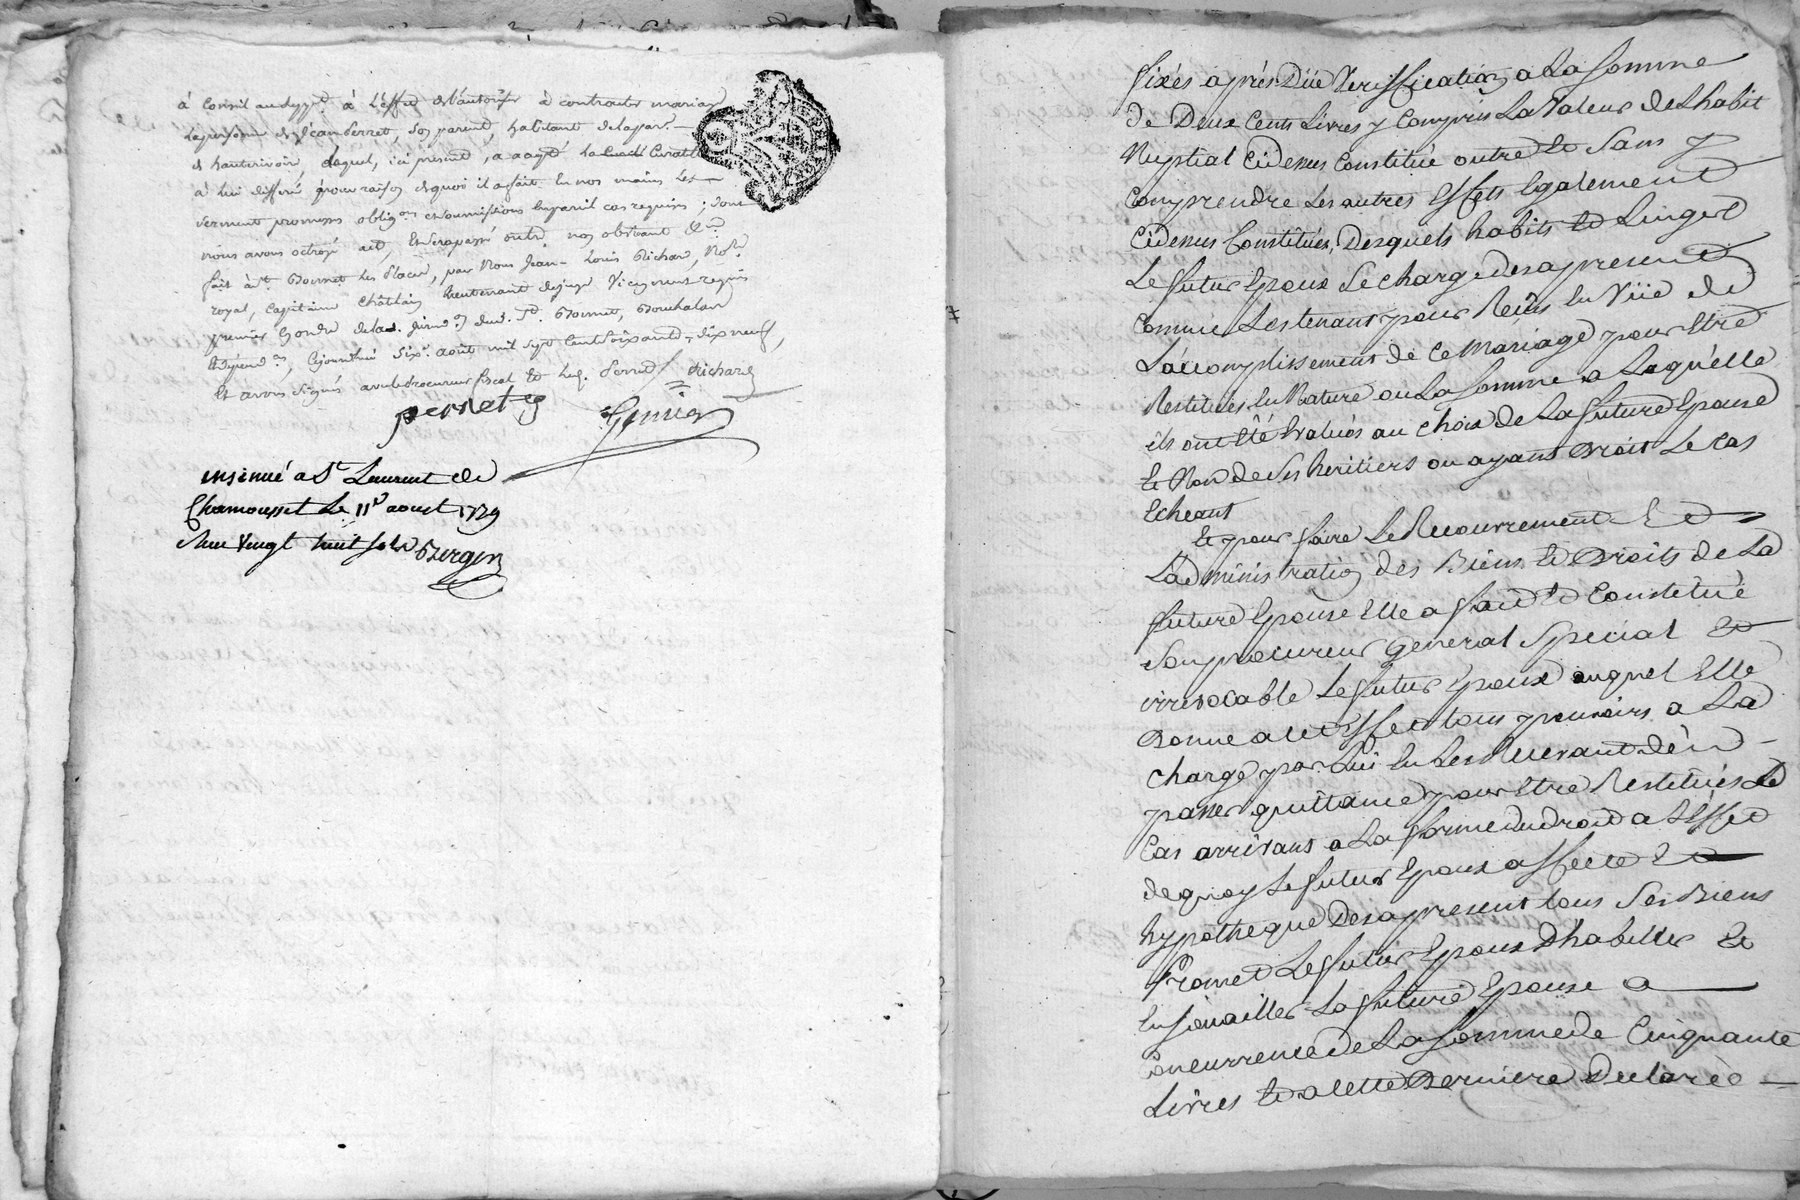 à Conseil audsupp.t à L'effet de l'autoriser à contracter mariage
de Jean Perret, son parent, habitant de la par.
d'hauterivoire lequel, ici présent, a accepté la Curatelle
à lui differé pour raison de quoi il a fait en nos mains les
serment promesses oblig.ons et soumissions en pareil cas requises ; dont
nous avons octroyé act, et sera passé outre non obstant &c.
fait à St. Bonnet les Places, par Nous Jean-Louis Richard, No.re
royal, Capitaine Châtelain Lieutenant de juge
premier de lad. Jurid.on dud. St. Bonnet,
et dépend.es, Cejourd'hui Six.e août mil Sept Cent Soixante-dix neuf,
et avons Signés avec le Procureur fiscal et led. Perret / Richard
perret
insinué a St Laurent de
Chamousset Le 11e aoust 1779
Reçu Vingt huit sols Berger
fixés après Düe Veriffication a La Somme
de Deux Cents Livres y Compris La Valeur de L'habit
Nuptial Cidessus Constitué outre et Sans y
Comprendre Les autres Effets Egalement
Cidessus Constitués, Desquels habits et Linges
Le futur Epoux Se charge des apresent
Comme Les tenant pour Reçus En Vüe de
L'accomplissement de Ce Mariage pour Etre
Restitués En Nature ou La Somme a Laquelle
ils ont Eté Evalués au choix de La future Epouse
et Non de Ses heritiers ou ayans Droit Le Cas
Echeant
Et pour faire Le Recouvrement Et
L'administration des Biens et Droits de La
future Epouse Elle a fait et Constitué
Son procureur General Special Et
irrevocable Le futur Epoux auquel Elle
Donne a cet Effet tous pouvoirs a La
charge par Lui En Les Recevant d'en
passer quittance pour Etre Restitués Le
Cas arrivant a La forme du droit a L'Effet
de quoy Le futur Epoux affecte Et
hypotheque Des apresent tous Ses Biens
Promet Le futur Epoux D'habiller Et
Enjouailler La future Epouse a
Concurrence de La Somme de Cinquante
Livres et a cette Derniere Declaré